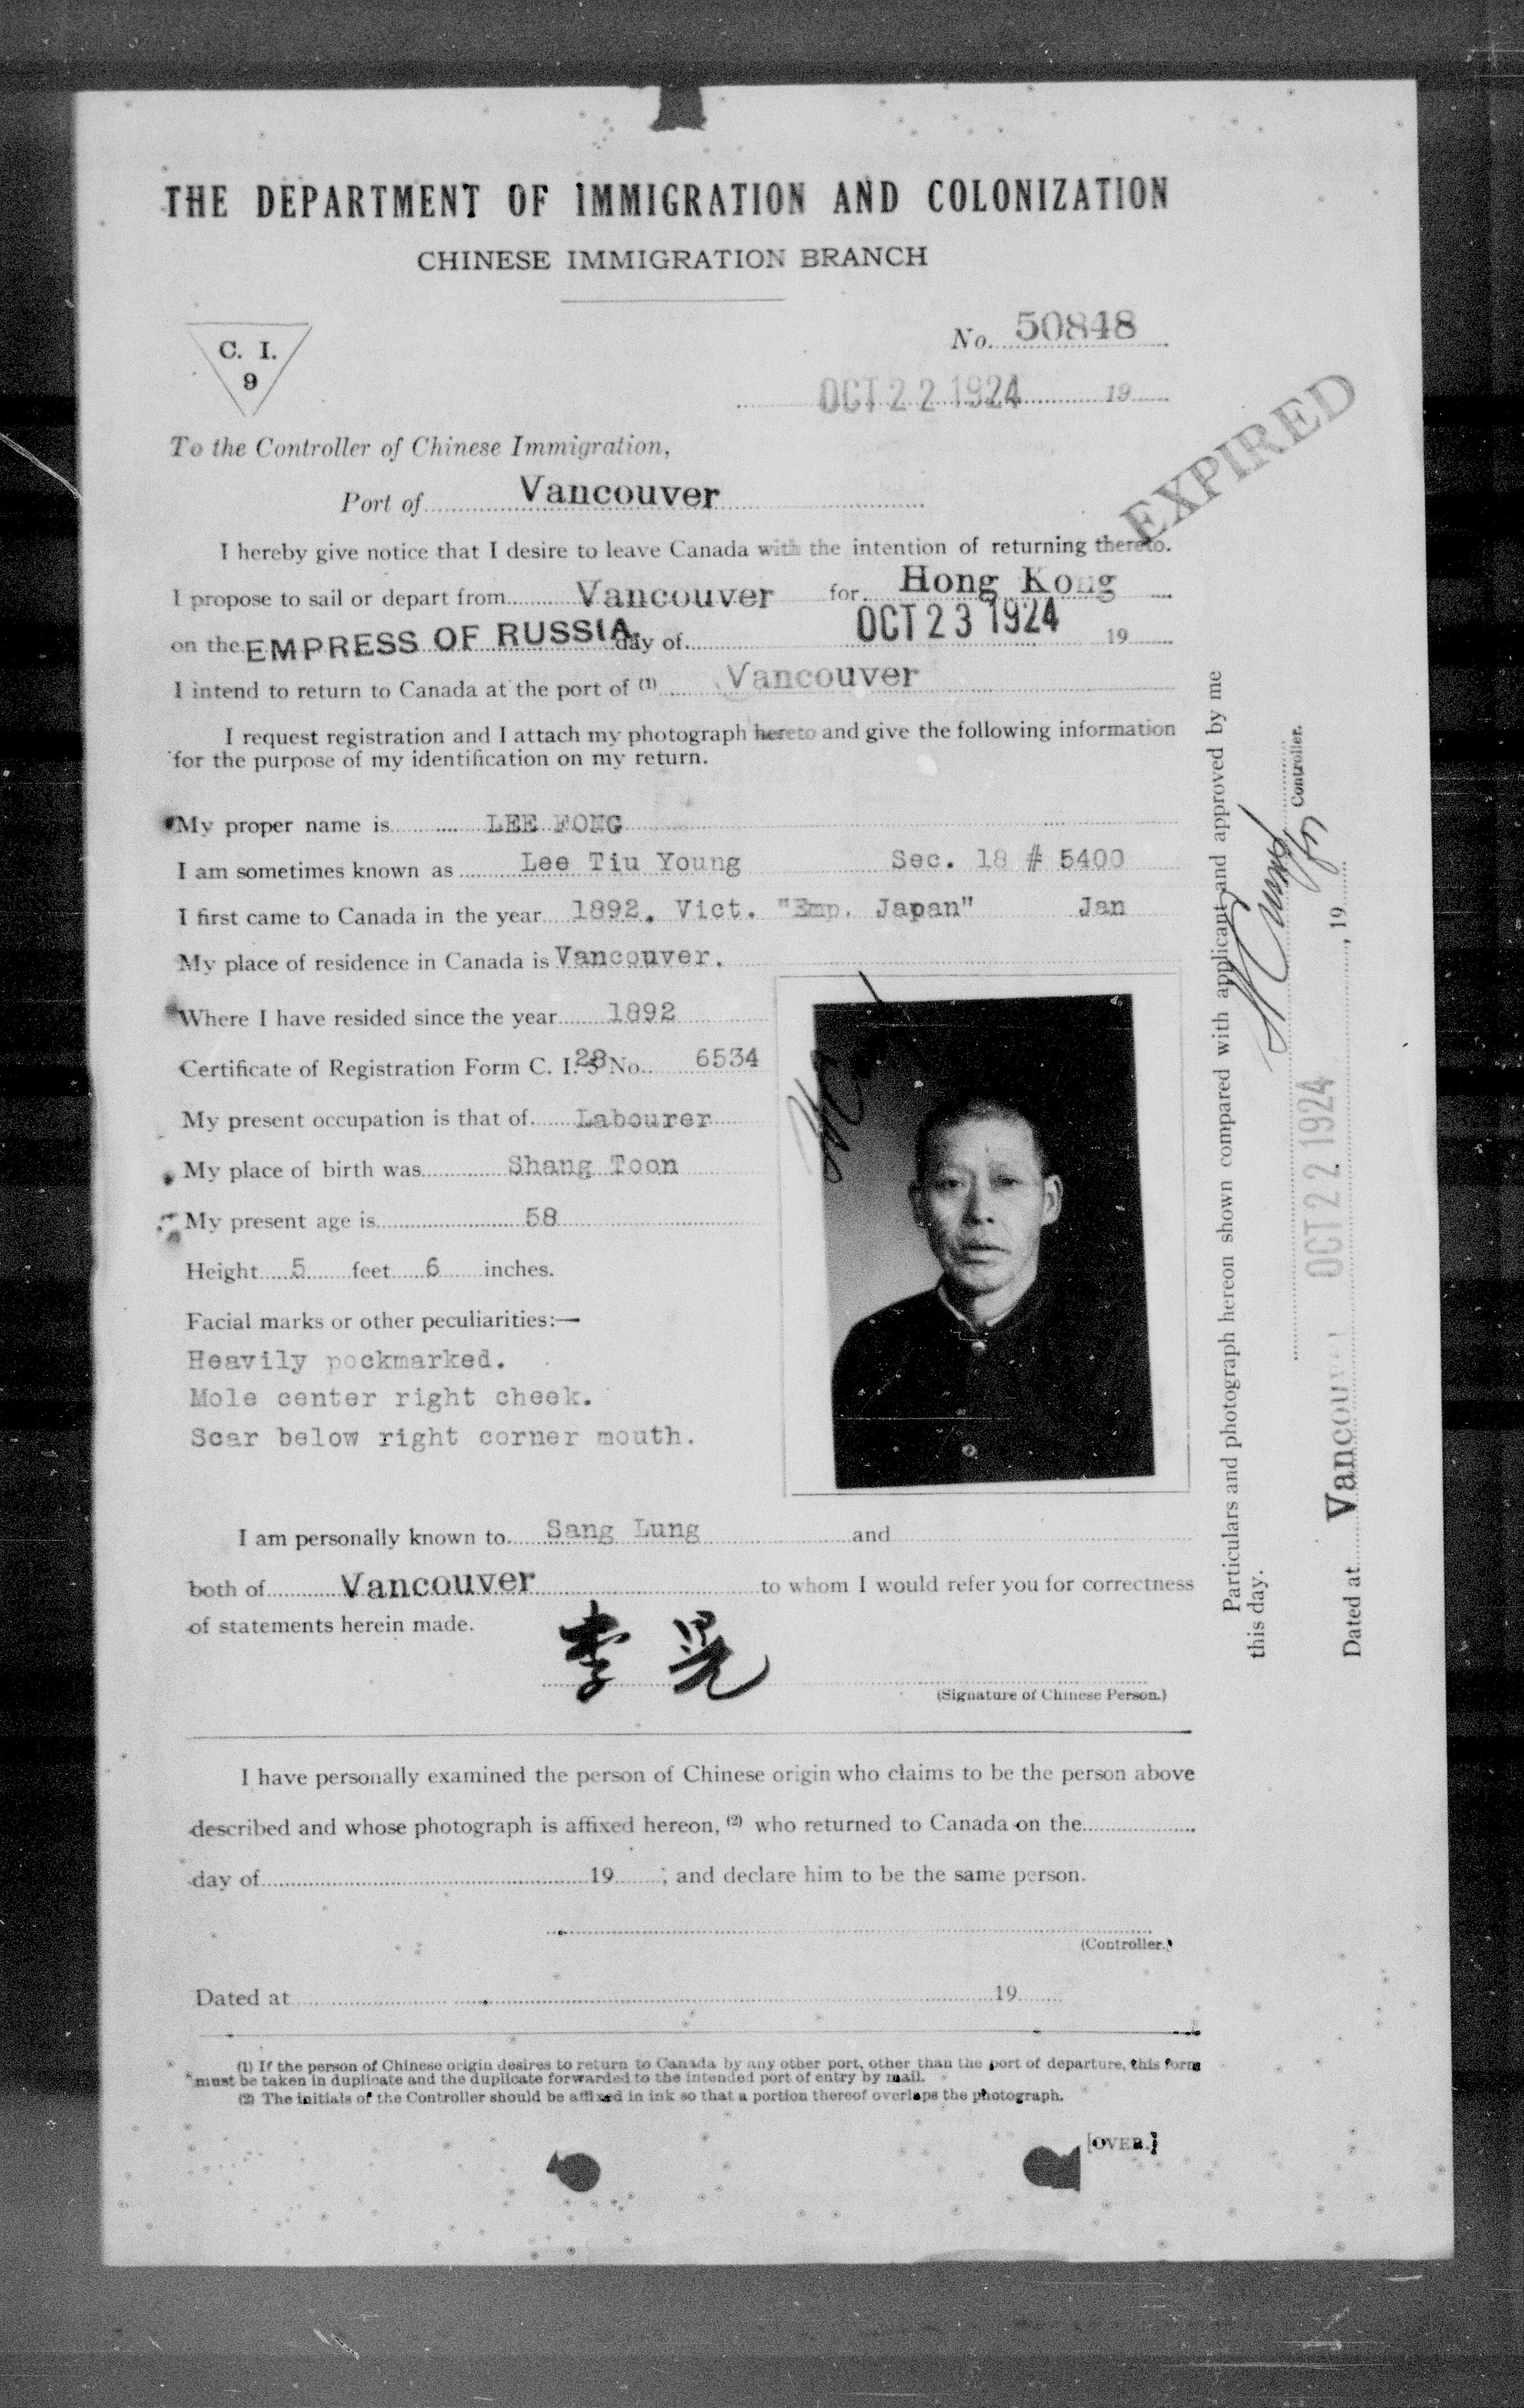 THE DEPARTMENT OF IMMIGRATION AND COLONIZATION
CHINESE IMMIGRATION BRANCH
C. I.
9
No. 50848
OCT 22 1924 19
To the Controller of Chinese Immigration,
Port of Vancouver
EXPIRED
I hereby give notice that I desire to leave Canada with the intention of returning thereto.
I propose to sail or depart from Vancouver for Hong Kong
on the EMPRESS OF RUSSIA day of OCT 23 1924 19
I intend to return to Canada at the port of (1) Vancouver
I request registration and I attach my photograph hereto and give the following information
for the purpose of my identification on my return.
My proper name is LEE FONG
I am sometimes known as Lee Tiu Young Sec. 18 # 5400
I first came to Canada in the year 1892. Vict. "Emp. Japan" Jan
My place of residence in Canada is Vancouver.
Where I have resided since the year 1892
Certificate of Registration Form C. I. 28 No. 6534
My present occupation is that of Labourer
My place of birth was Shang Toon
My present age is 58
Height 5 feet 6 inches.
Facial marks or other peculiarities:—
Heavily pockmarked.
Mole center right cheek.
Scar below right corner mouth.
I am personally known to Sang Lung and
both of Vancouver to whom I would refer you for correctness
of statements herein made.
李晃
(Signature of Chinese Person.)
I have personally examined the person of Chinese origin who claims to be the person above
described and whose photograph is affixed hereon, (2) who returned to Canada on the
day of 19 ; and declare him to be the same person.
(Controller.)
Dated at 19
(1) If the person of Chinese origin desires to return to Canada by any other port, other than the port of departure, this form
must be taken in duplicate and the duplicate forwarded to the intended port of entry by mail.
(2) The initials of the Controller should be affixed in ink so that a portion thereof overlaps the photograph.
[OVER.]
Particulars and photograph hereon shown compared with applicant and approved by me
this day.
Controller.
Dated at Vancouver OCT 22 1924, 19